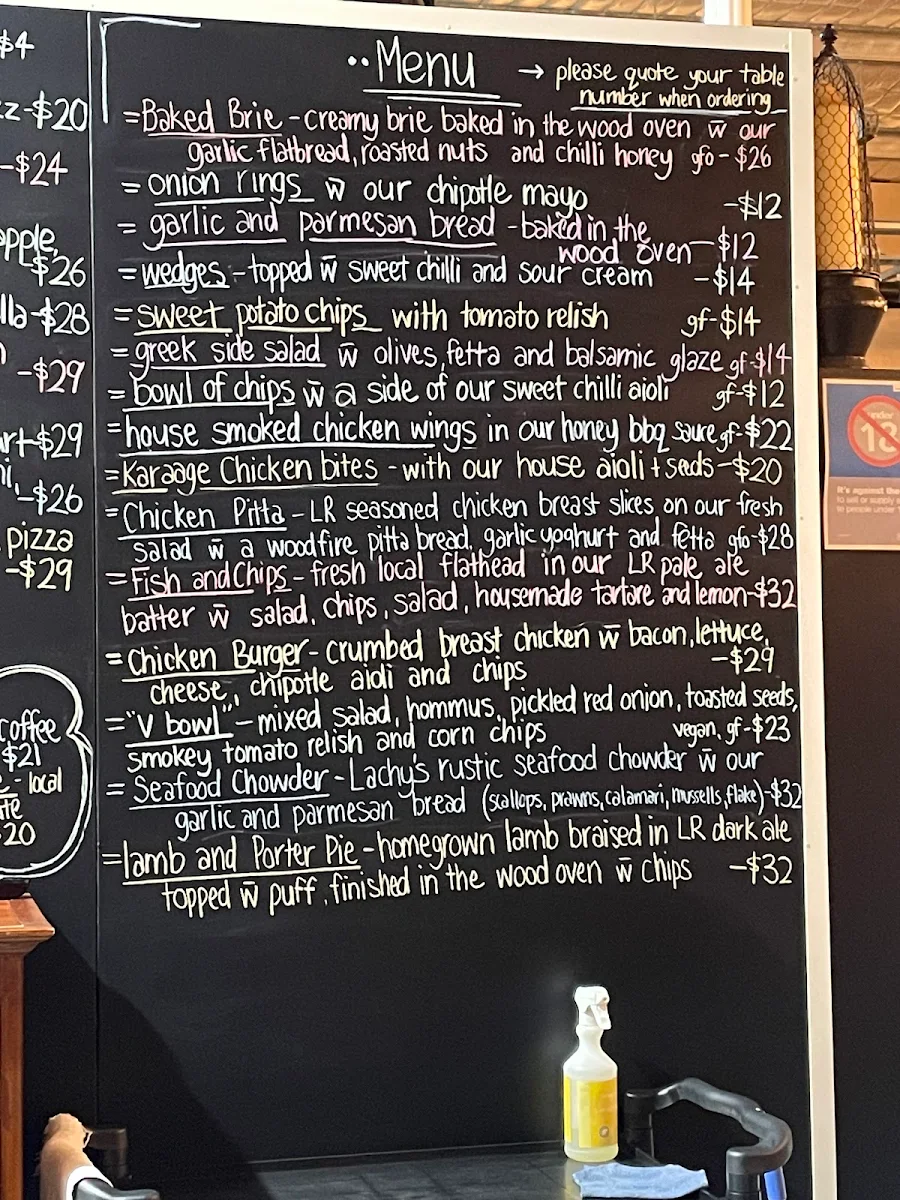 $4
z-$20
-$24
pple,
$26
lla-$28
-$29
rt-$29
-$26
pizza
-$29
coffee
$21
- local
20
..Menu → please quote your table
number when ordering
=Baked Brie - creamy brie baked in the wood oven w̄ our
garlic flatbread, roasted nuts and chilli honey gfo - $26
= onion rings w̄ our chipotle mayo -$12
= garlic and parmesan bread - baked in the
wood oven - $12
= wedges - topped w̄ sweet chilli and sour cream -$14
= sweet potato chips with tomato relish gf-$14
= greek side salad w̄ olives, fetta and balsamic glaze gf-$14
= bowl of chips w̄ a side of our sweet chilli aioli gf-$12
=house smoked chicken wings in our honey bbq sauce gf-$22
=Karaage Chicken bites - with our house aioli + seeds-$20
=Chicken Pitta - LR seasoned chicken breast slices on our fresh
salad w̄ a woodfire pitta bread, garlic yoghurt and fetta gfo-$28
=Fish and Chips - fresh local flathead in our LR pale ale
batter w̄ salad, chips, salad, housemade tartare and lemon-$32
=Chicken Burger - crumbed breast chicken w̄ bacon, lettuce,
cheese, chipotle aioli and chips -$29
="V bowl" - mixed salad, hommus, pickled red onion, toasted seeds,
smokey tomato relish and corn chips vegan, gf-$23
= Seafood Chowder - Lachy's rustic seafood chowder w̄ our
garlic and parmesan bread (scallops, prawns, calamari, mussells, flake)-$32
=lamb and Porter Pie - homegrown lamb braised in LR dark ale
topped w̄ puff, finished in the wood oven w̄ chips -$32
under
18
It's against the
to sell or supply
to people under